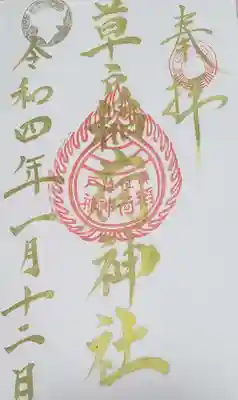 奉拝
草戸稲荷神社
令和四年一月十二日